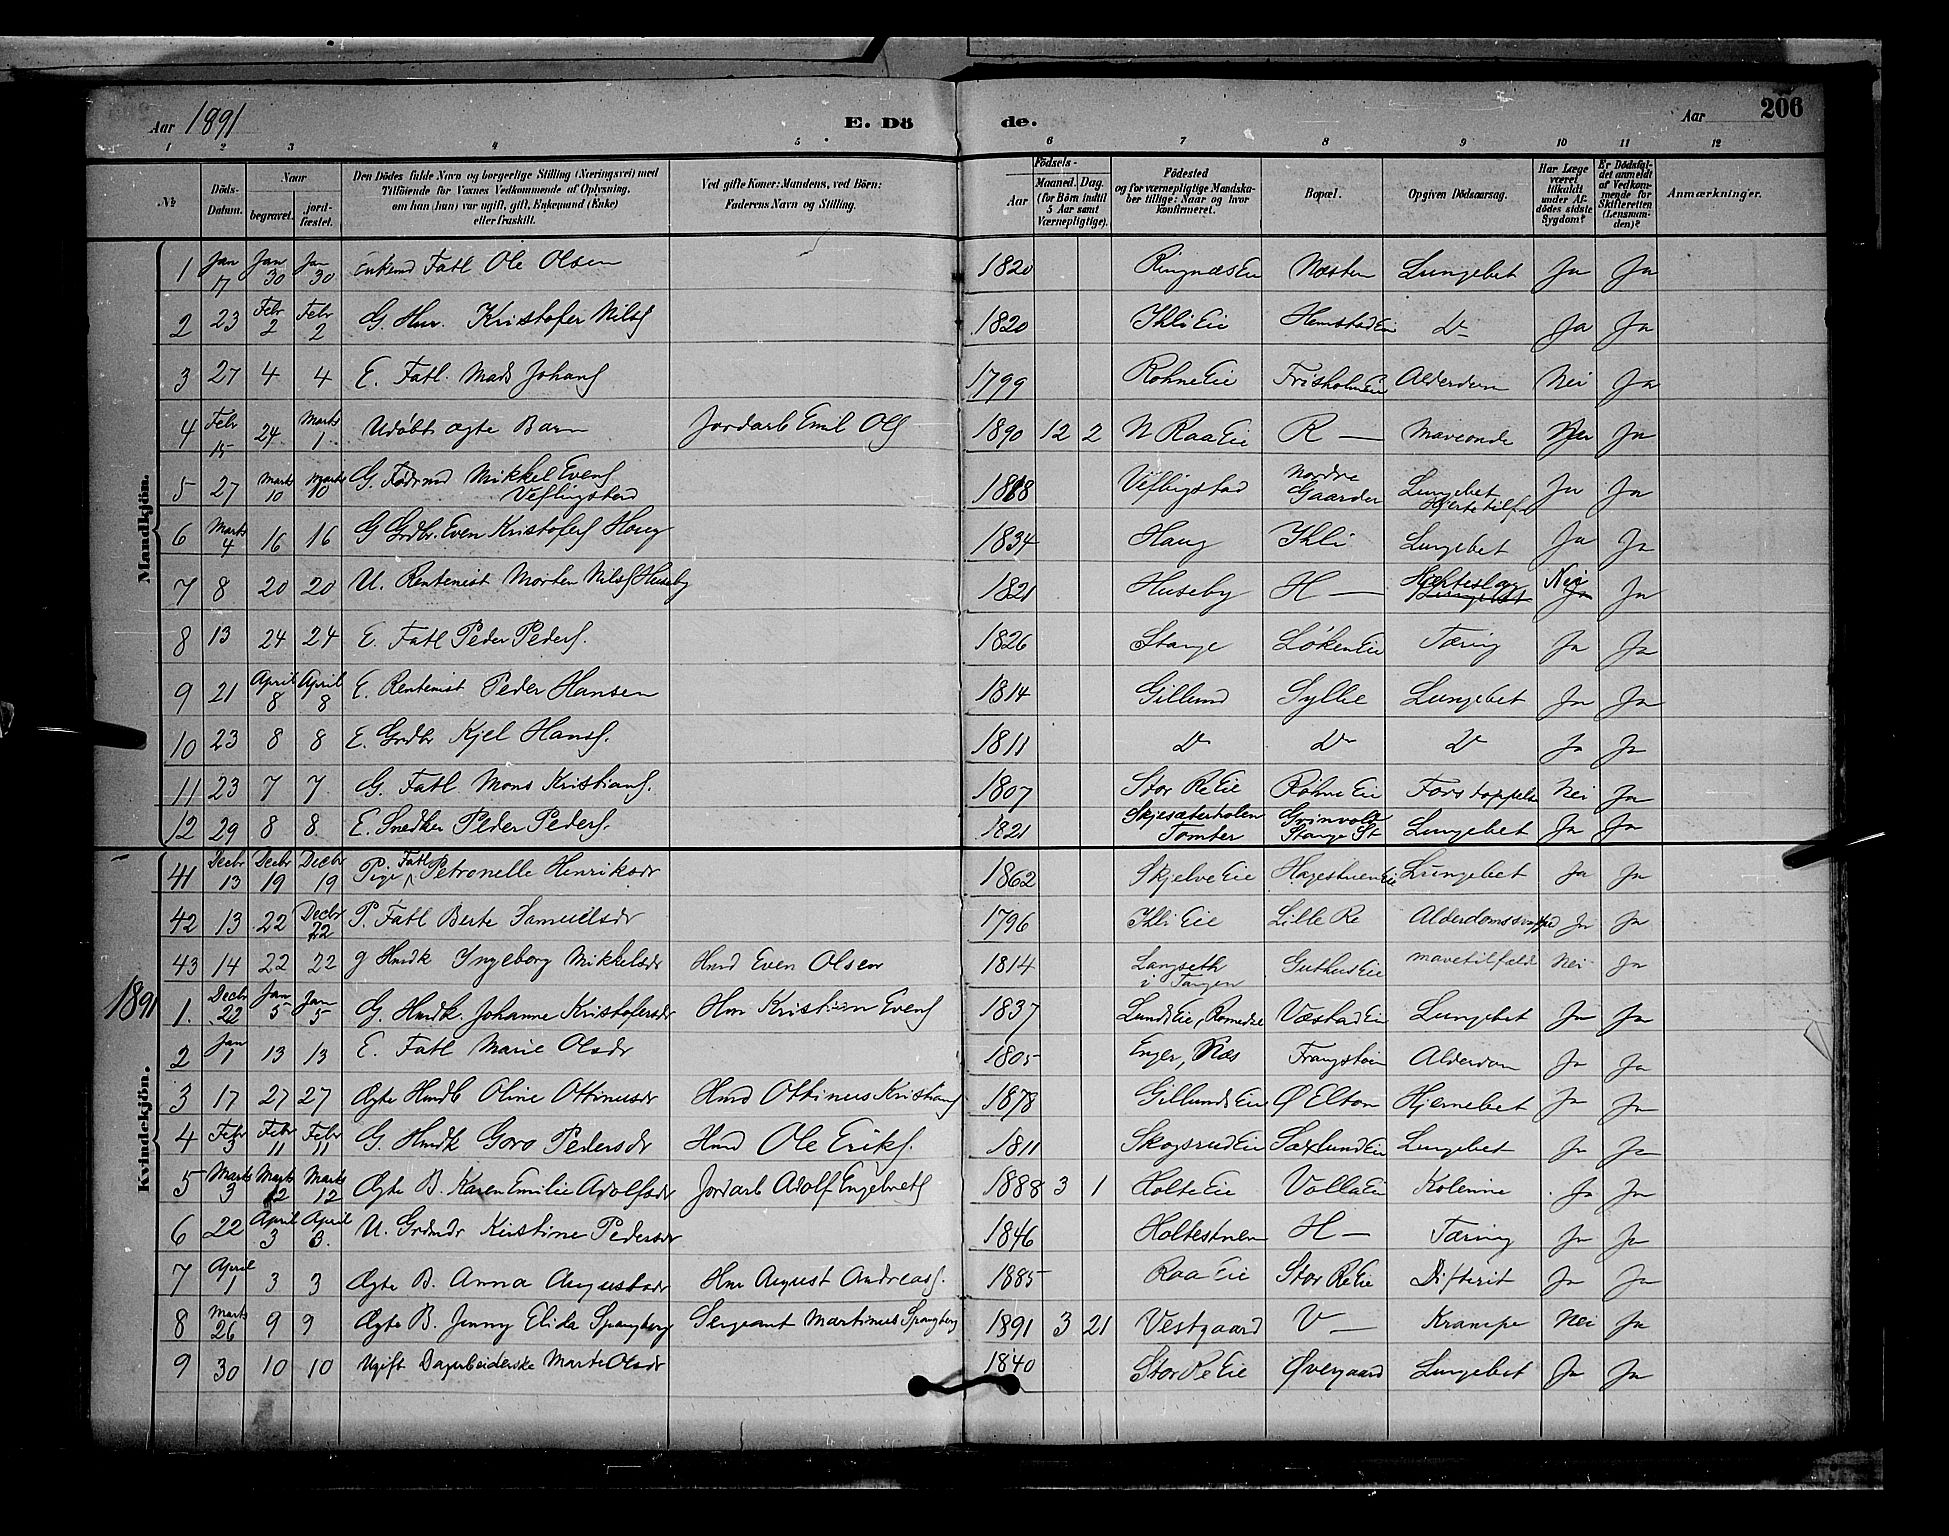 Aar 1891 E. Dö de. Aar 206
1 2 3 4 5 6 7 8 9 10 11 12
№ Döds-Datum. Naar begravet. jord-fæstet. Den Dödes fulde Navn og borgerlige Stilling (Næringsvei) med Tilföiende for Voxnes Vedkommende af Oplysning, om han (hun) var ugift, gift, Enkemand (Enke) eller fraskilt. Ved gifte Koner: Mandens, ved Börn: Faderens Navn og Stilling. Födsels- Aar Maaned. Dag. (for Börn indtil 5 Aar samt Værnepligtige). Födested og for værnepligtige Mandskaber tillige: Naar og hvor konfirmeret. Bopæl. Opgiven Dödsaarsag. Har Læge været tilkaldt under Afdödes sidste Sygdom? Er Dödsfaldet anmeldt af Vedkommende for Skifteretten (Lensmanden)? Anmærkninger.
Mandkjön.
1 Jan 17 Jan 30 Jan 30 Enkemd Fatl Ole Olsen 1820 Ringnæs Eie Næsten Lungebet Ja Ja
2 23 Febr 2 Febr 2 G. Hm. Kristofer Nilss 1820 Ihli Eie Hemstad Ei Do Ja Ja
3 27 4 4 E. Fatl. Mads Johans 1799 Rohne Eie Frisholm Ei Alderdom Nei Ja
4 Febr 15 24 Marts 1 Udöbt ægte Barn Jordarb Emil Ols 1890 12 2 N Raa Eie R — Maveonde Nei Ja
5 27 Marts 10 Marts 10 G. Födrmd Mikkel Evens Veflingstad 1818 Veflingstad Nordre Gaarder Lungebet Hjertetilf. Ja Ja
6 Marts 4 16 16 G Grdbr. Even Kristofers Haug 1834 Haug Ihli Lungebet Ja Ja
7 8 20 20 U. Rentenist Morten Nilss Huseby 1821 Huseby H — Hjerteslag Lungebet Nei Ja Ja
8 13 24 24 E. Fatl Peder Peders. 1826 Stange Löken Eie Tæring Ja Ja
9 21 April 8 April 8 E. Rentenist Peder Hansen 1814 Gillund Syllie Lungebet Ja Ja
10 23 8 8 E. Grdbr Kjel Hans. 1811 Do Do Do Ja Ja
11 23 7 7 G. Fatl Mons Kristians. 1807 Stor Re Eie Röhne Eie Forstoppelse Nei Ja
12 29 8 8 E. Snedker Peder Peders. 1821 Skjesæterholen Tomter Grinvold Stange St Lungebet Ja Ja
Kvindekjön.
41 Decbr 13 Decbr 19 Decbr 19 Pige Fatl Petronelle Henriksdr 1862 Skjelve Eie Hagestuen Eie Lungebet Ja Ja
42 13 22 Decbr 22 P. Fatl Berte Samuelsdr 1796 Ihli Eie Lille Re Alderdomssvaghed Ja Ja
43 14 22 22 g Hmdk Ingeborg Mikkelsdr Hmd Even Olsen 1814 Langseth i Tangen Guthus Eie Mavetilfælde Nei Ja
1891
1. Decbr 22 Jan 5 Jan 5 G. Hmdk. Johanne Kristofersdr Hm Kristian Evens 1837 Lunds Eie, Romedal Væstad Ei Lungebet Ja Ja
2 Jan 1 13 13 E. Fatl Marie Olsdr 1805 Enger, Næs Frangstöen Alderdom Ja Ja
3 17 27 27 Ægte Hmdb Oline Ottinusdr Hmd Ottinus Kristians 1878 Gillunds Eie Ø Elton Hjernebet Ja Ja
4 Febr 3 Febr 11 Febr 11 G. Hmdk Goro Pedersdr Hmd Ole Eriks. 1811 Skogsrud Eie Saxlund Ei Lungebet Ja Ja
5 Marts 3 Marts 12 Marts 12 Ægte B. Karen Emilie Adolfsdr Jordarb Adolf Engebrets 1888 3 1 Holte Eie Volla Ei Kolerine Ja Ja
6 22 April 3 April 3. U. Grdmdr Kristine Pedersdr 1846 Holtestuen H — Tæring Ja Ja
7 April 1 3 3 Ægte B. Anna Augustsdr Hm August Andreas. 1885 Raa Eie Stor Re Eie Difterit Ja Ja
8 Marts 26 9 9 Ægte B. Jenny Elida Spangberg Sergeant Martinus Spangberg 1891 3 21 Vestgaard V — Krampe Nei Ja
9 30 10 10 Ugift Dagarbeiderske Marte Olsdr 1840 Stor Re Eie Øvergaard Lungebet Ja Ja